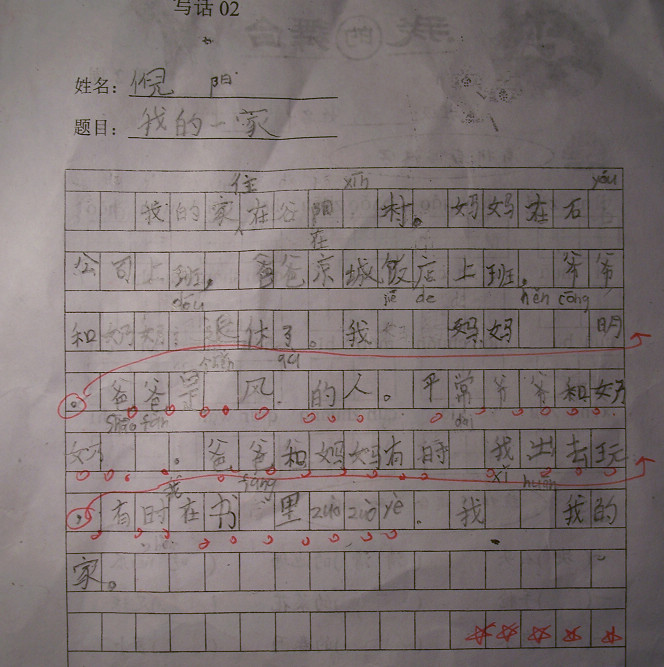 写话 02
姓名: 倪 阳
题目: 我的一家
住 xīn yóu
我的家在谷阳 村。妈妈在石
在
公司上班。爸爸京城饭店上班。爷爷
dōu jiě de hěn cōng
和奶奶 退休了。我 妈妈 明
个 qù
。爸爸是 风 的人。平常爷爷和奶
shāo fàn dài
奶 。爸爸和妈妈有时 我出去玩
我 fáng xǐ huān
,有时在书 里 zuò zuò yè 。我 我的
家。